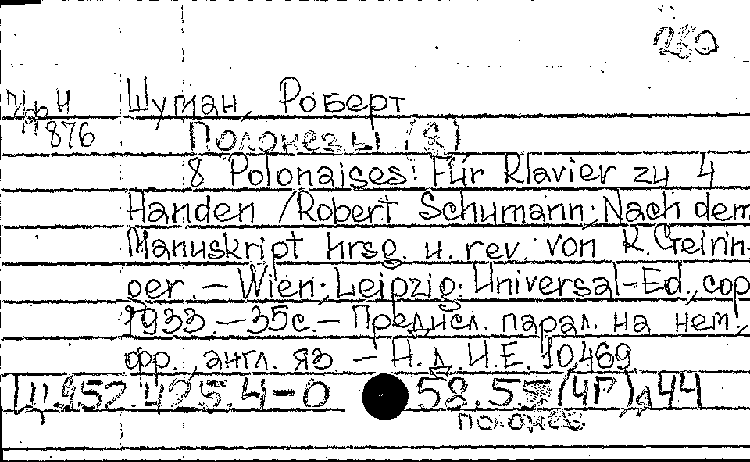 280
Н 876
Шуман, Роберт
Полонезы (8)
8 Polonaises: Für Klavier zu 4
Handen / Robert Schumann; Nach dem
Manuskript hrsg. u. rev. von K. Geirin-
ger. – Wien; Leipzig: Universal-Ed., cop.
1933. – 35 с. – Предисл. парал. на нем.,
фр., англ. яз. – Н. д. U.E. 10469
Щ 952.425.4-0 58.55(4Г)д44
полонез